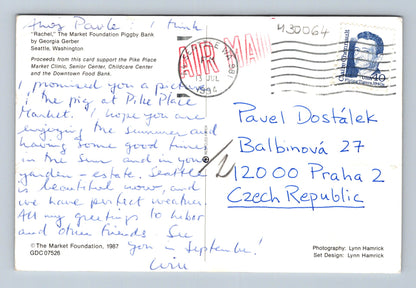 Ahoj Pavle! I think
"Rachel," The Market Foundation Piggy Bank
by Georgia Gerber
Seattle, Washington
Proceeds from this card support the Pike Place
Market Clinic, Senior Center, Childcare Center
and the Downtown Food Bank.
I promised you a picture
of the pig at Pike Place
Market. I hope you are
enjoying the summer and
having some good time
in the sun and in your
garden - estate. Seattle
is beautiful now, and
we have perfect weather.
All my greetings to
and other friends. See
you in September!
© The Market Foundation, 1987
GDC07526
AIR MAIL
SEATTLE WA 981
JUL
1994
430064
40
Pavel Dostálek
Balbinová 27
12000 Praha 2
Czech Republic
Photography: Lynn Hamrick
Set Design: Lynn Hamrick